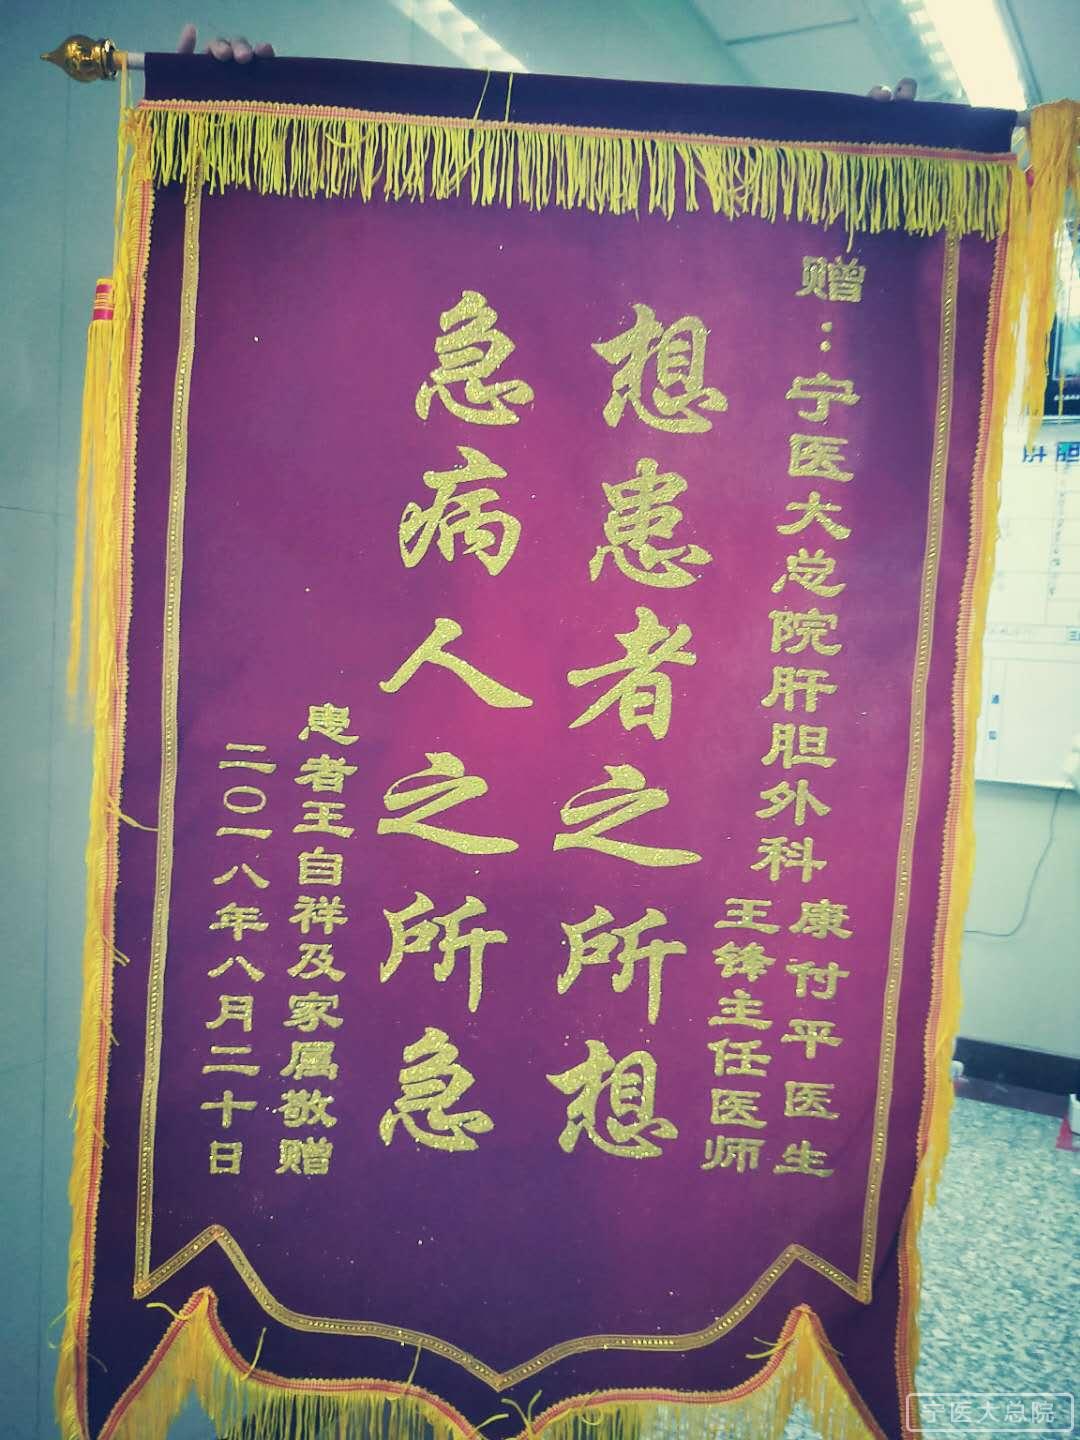 赠：宁医大总院肝胆外科
康付平医生
王锋主任医师
想患者之所想
急病人之所急
患者王自祥及家属敬赠
二〇一八年八月二十日
肝胆
宁医大总院